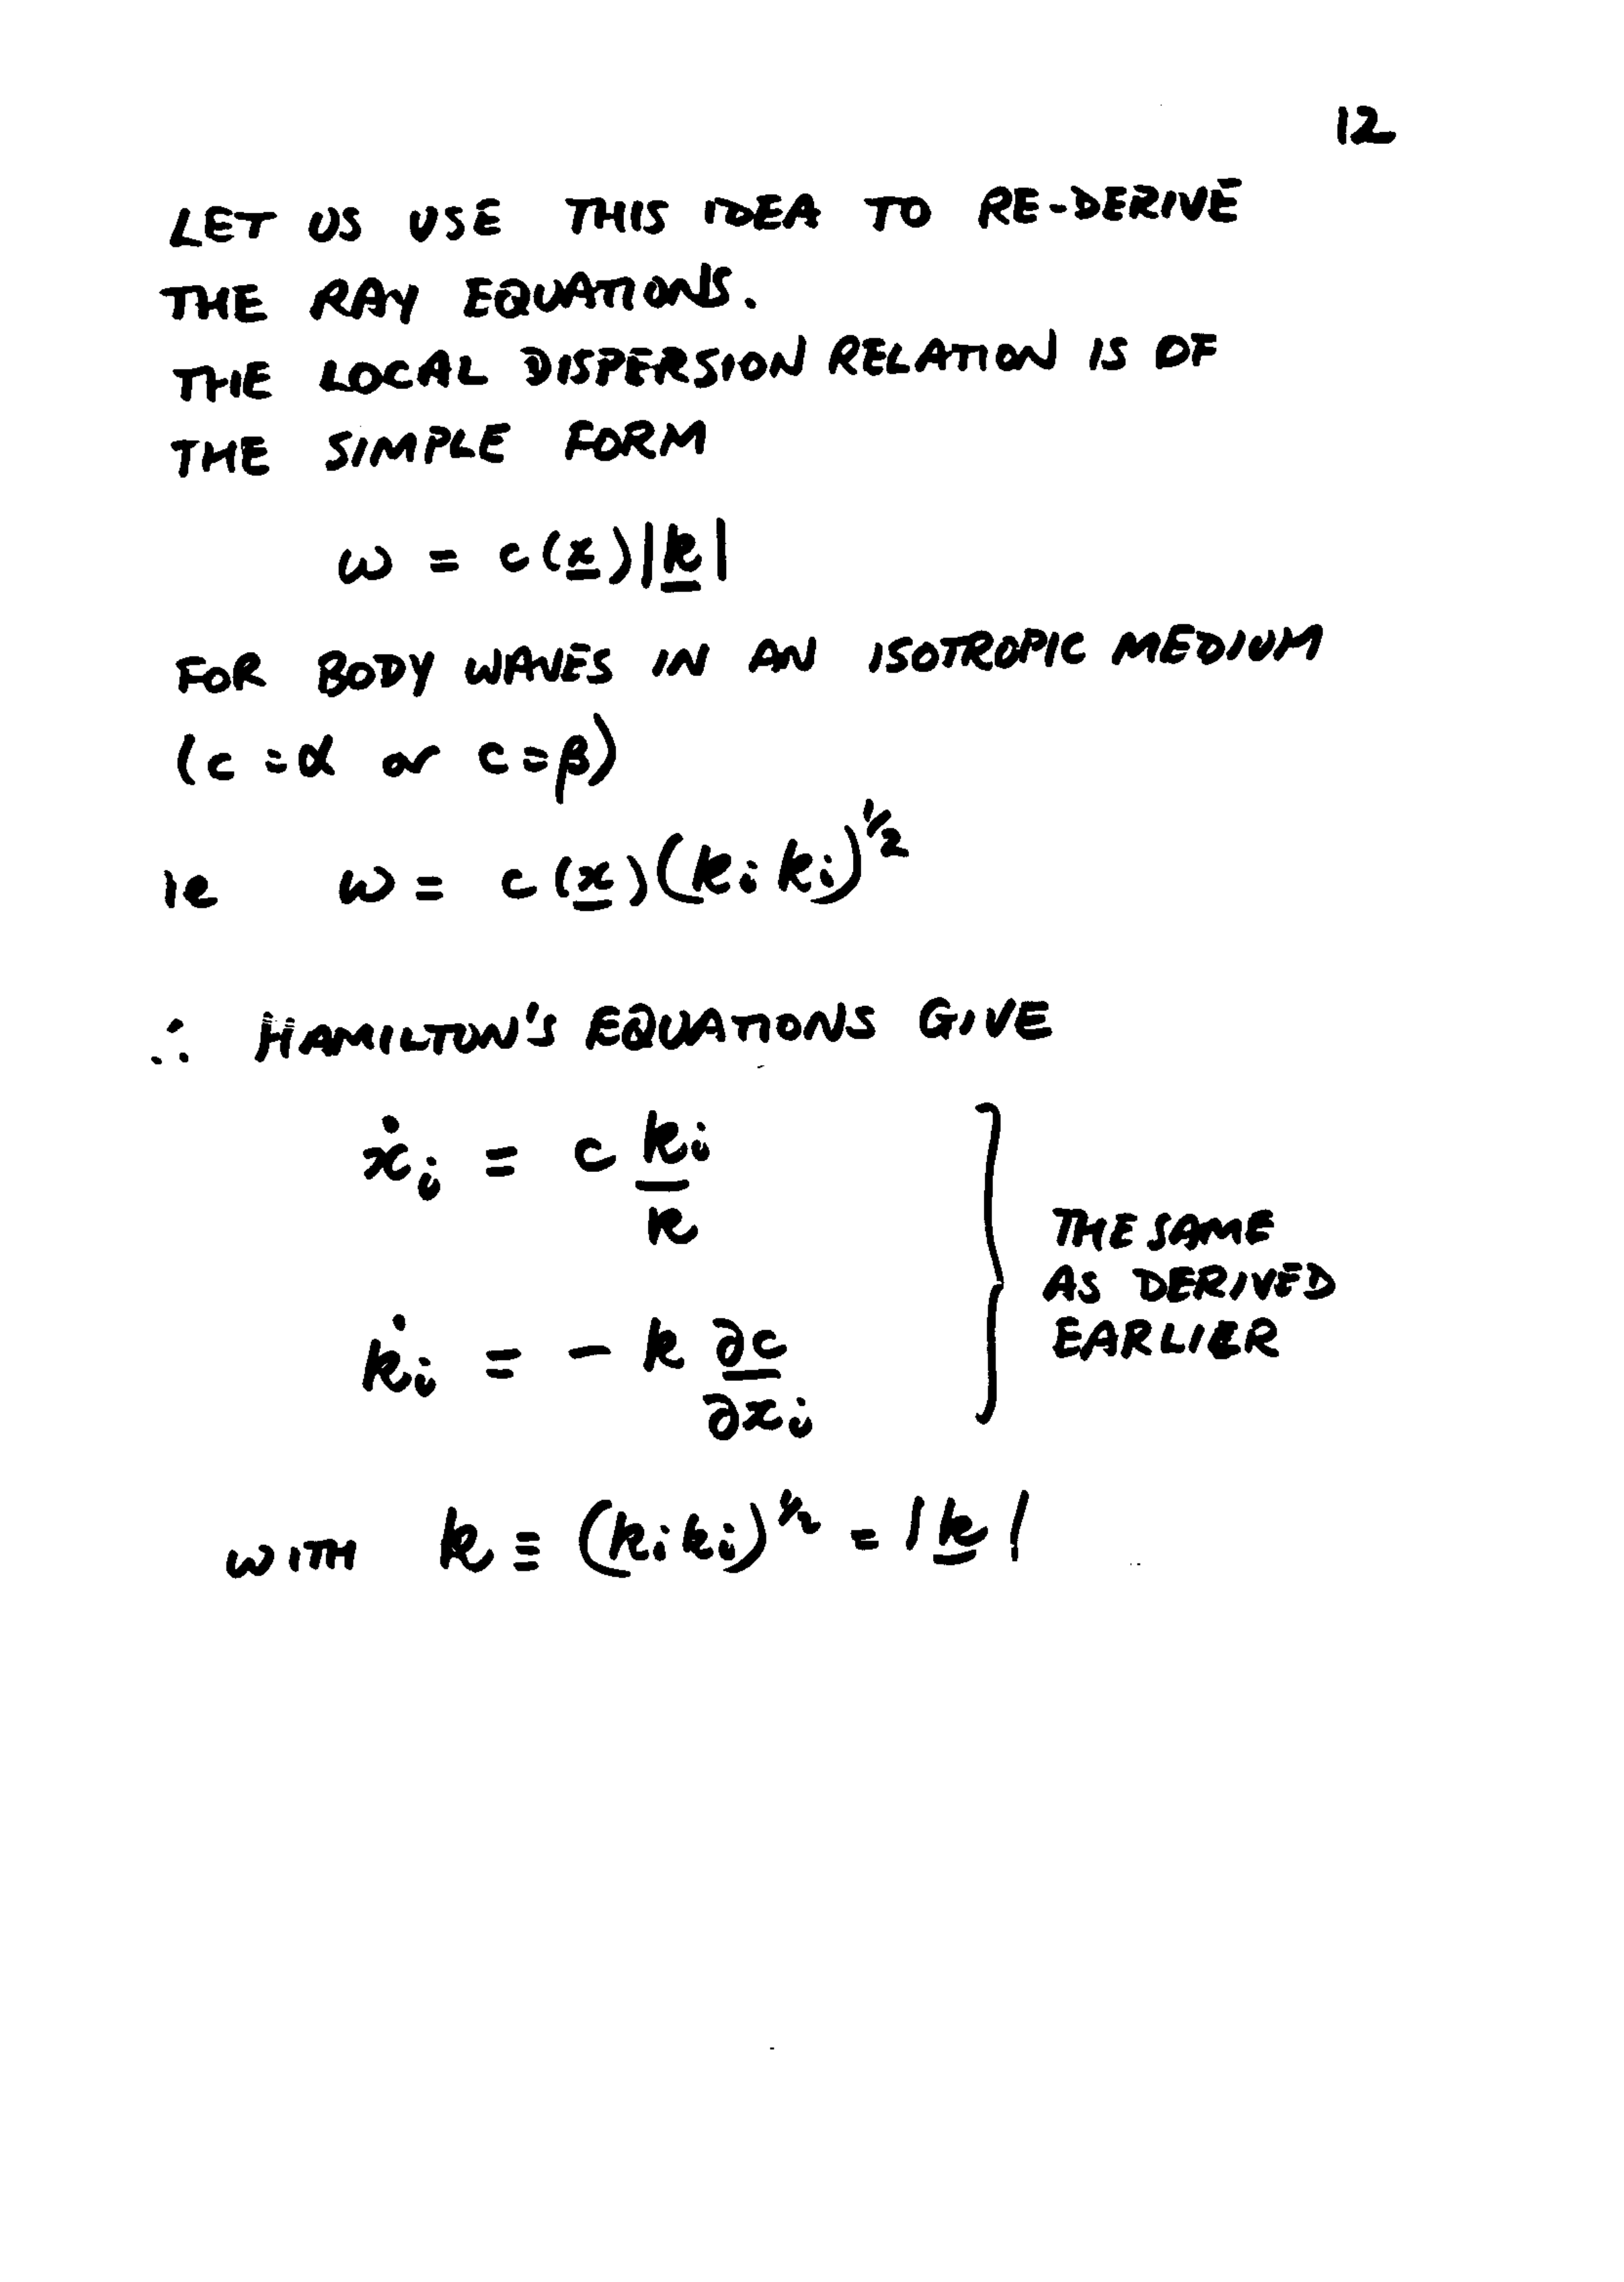 12
LET US USE THIS IDEA TO RE-DERIVE
THE RAY EQUATIONS.
THE LOCAL DISPERSION RELATION IS OF
THE SIMPLE FORM
ω = c(x̲)|k̲|
FOR BODY WAVES IN AN ISOTROPIC MEDIUM
(c = α or c = β)
ie ω = c(x̲)(kᵢkᵢ)^½
∴ HAMILTON'S EQUATIONS GIVE
ẋᵢ = c kᵢ/k
k̇ᵢ = - k ∂c/∂xᵢ
THE SAME
AS DERIVED
EARLIER
WITH k ≡ (kᵢkᵢ)^½ = |k̲|